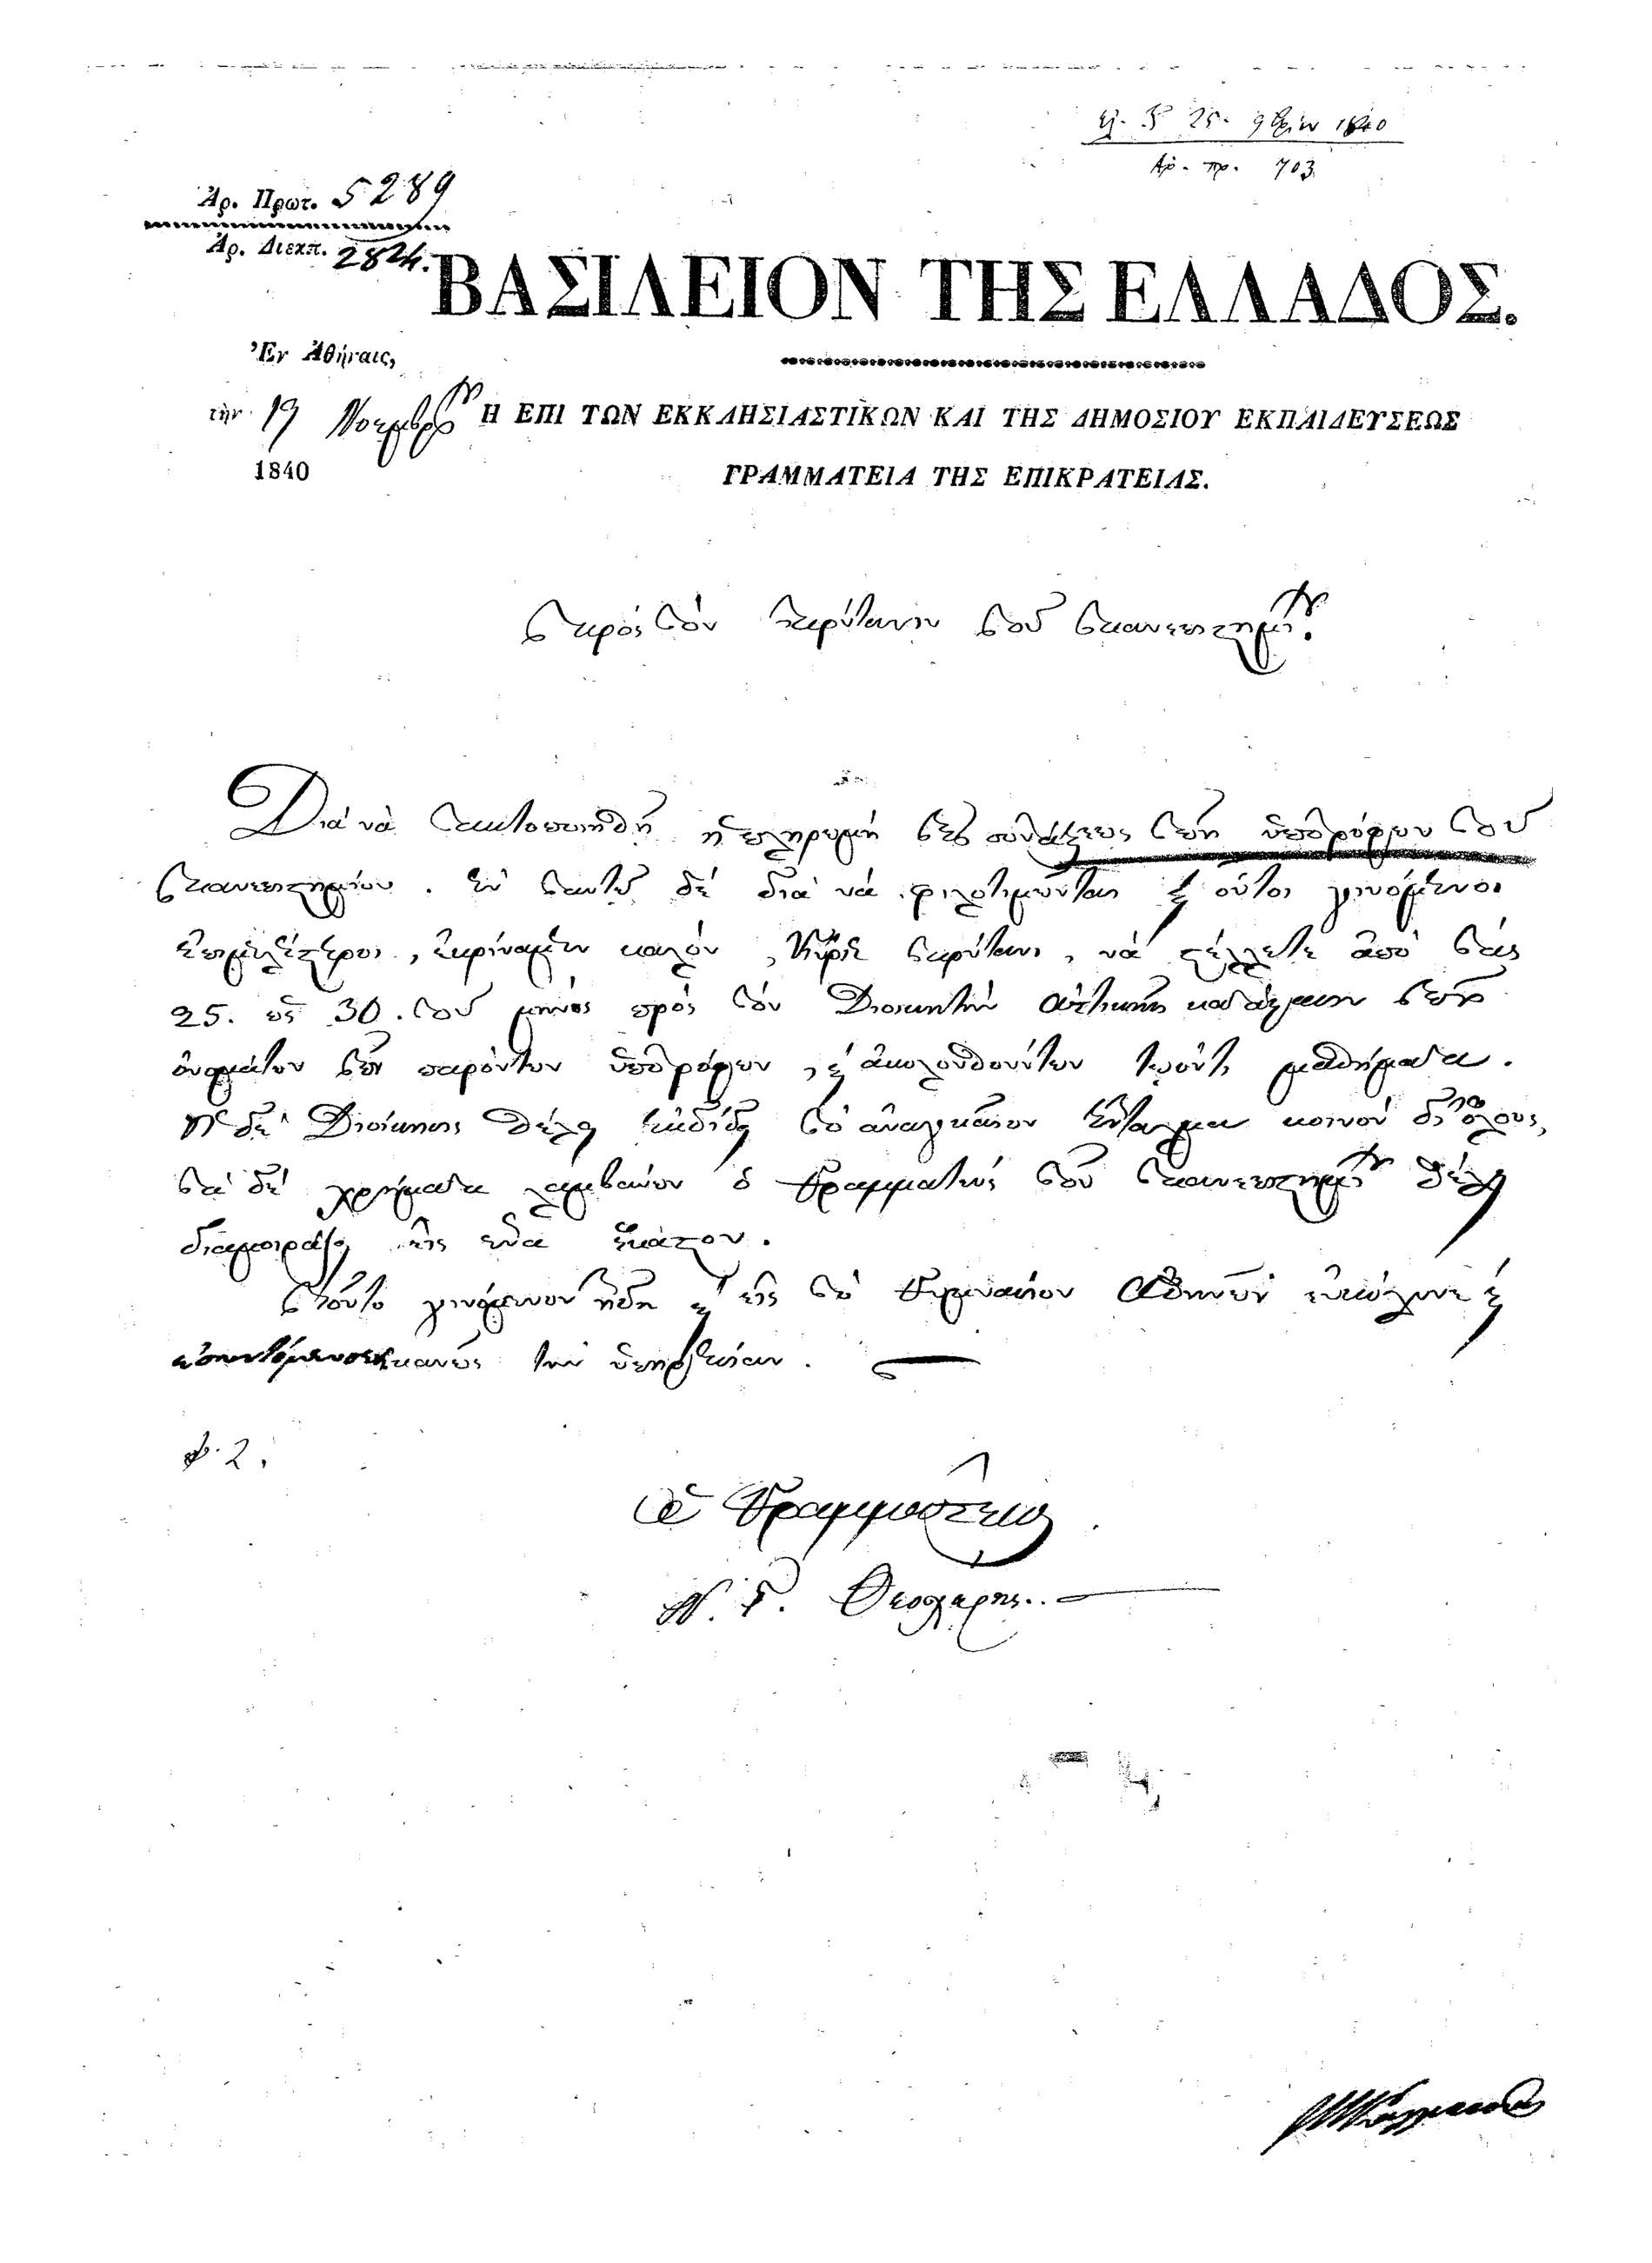 25. 9βρίου 1840
Ἀρ. πρ. 703
Ἀρ. Πρωτ. 5289
Ἀρ. Διεκπ. 2824.
ΒΑΣΙΛΕΙΟΝ ΤΗΣ ΕΛΛΑΔΟΣ.
Ἐν Ἀθήναις,
τὴν 19 Νοεμβρ
1840
Η ΕΠΙ ΤΩΝ ΕΚΚΛΗΣΙΑΣΤΙΚΩΝ ΚΑΙ ΤΗΣ ΔΗΜΟΣΙΟΥ ΕΚΠΑΙΔΕΥΣΕΩΣ
ΓΡΑΜΜΑΤΕΙΑ ΤΗΣ ΕΠΙΚΡΑΤΕΙΑΣ.
Πρὸς τὸν Πρύτανιν τοῦ Πανεπιστημ.
Διὰ νὰ τακτοποιηθῇ ἡ πληρωμὴ τῆς συντάξεως τῶν ὑποτρόφων τοῦ
Πανεπιστημίου. ἐν ταυτῷ δὲ διὰ νὰ φιλοτιμῶνται καὶ οὗτοι γινόμενοι
ἐπιμελέστεροι, ἐκρίναμεν καλὸν, Κύριε Πρύτανι, νὰ στέλλετε ἀπὸ τὰς
25. ὡς 30. τοῦ μηνὸς πρὸς τὸν Διοικητὴν Ἀττικῆς κατάλογον τῶν
ὀνομάτων τῶν παρόντων ὑποτρόφων, καὶ ἀκολουθούντων τακτ. μαθήματα.
Ἡ δὲ Διοίκησις θέλει ἐκδίδει τὸ ἀναγκαῖον ἔνταλμα κοινὸν δι' ὅλους,
τὰ δὲ χρήματα λαμβάνων ὁ Γραμματεὺς τοῦ Πανεπιστημ θέλει
διαμοιράζει εἰς ἕνα ἕκαστον.
Τοῦτο γινόμενον ἤδη καὶ εἰς τὸ Γυμνάσιον Ἀθηνῶν εὐκόλυνε καὶ
ἱκανῶς τὴν ὑπηρεσίαν.
φ. 2.
Ὁ Γραμματεὺς
Ν. Γ. Θεοχάρης.